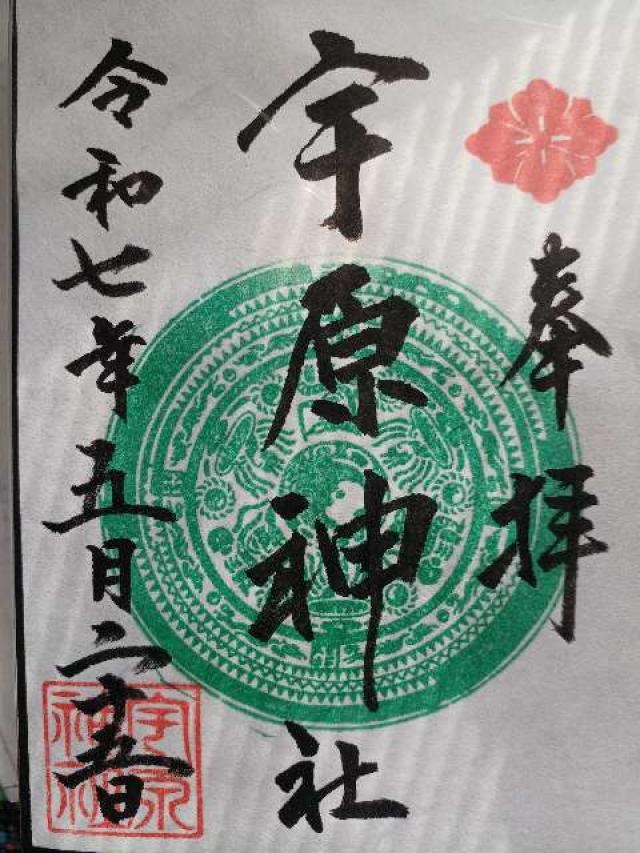 奉拝
宇原神社
令和七年五月二十五日
宇原
神社